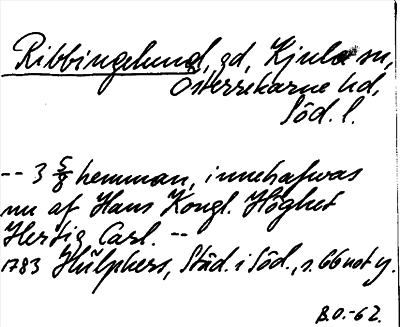 Ribbingelund, gd, Kjula sn,
Österrekarne hd,
Söd. l.
-- 3 5/8 hemman, innehafwas
nu af Hans Kongl. Höghet
Hertig Carl. --
1783 Hülphers, Städ. i Söd., s. 66 not y.
B.O.-62.